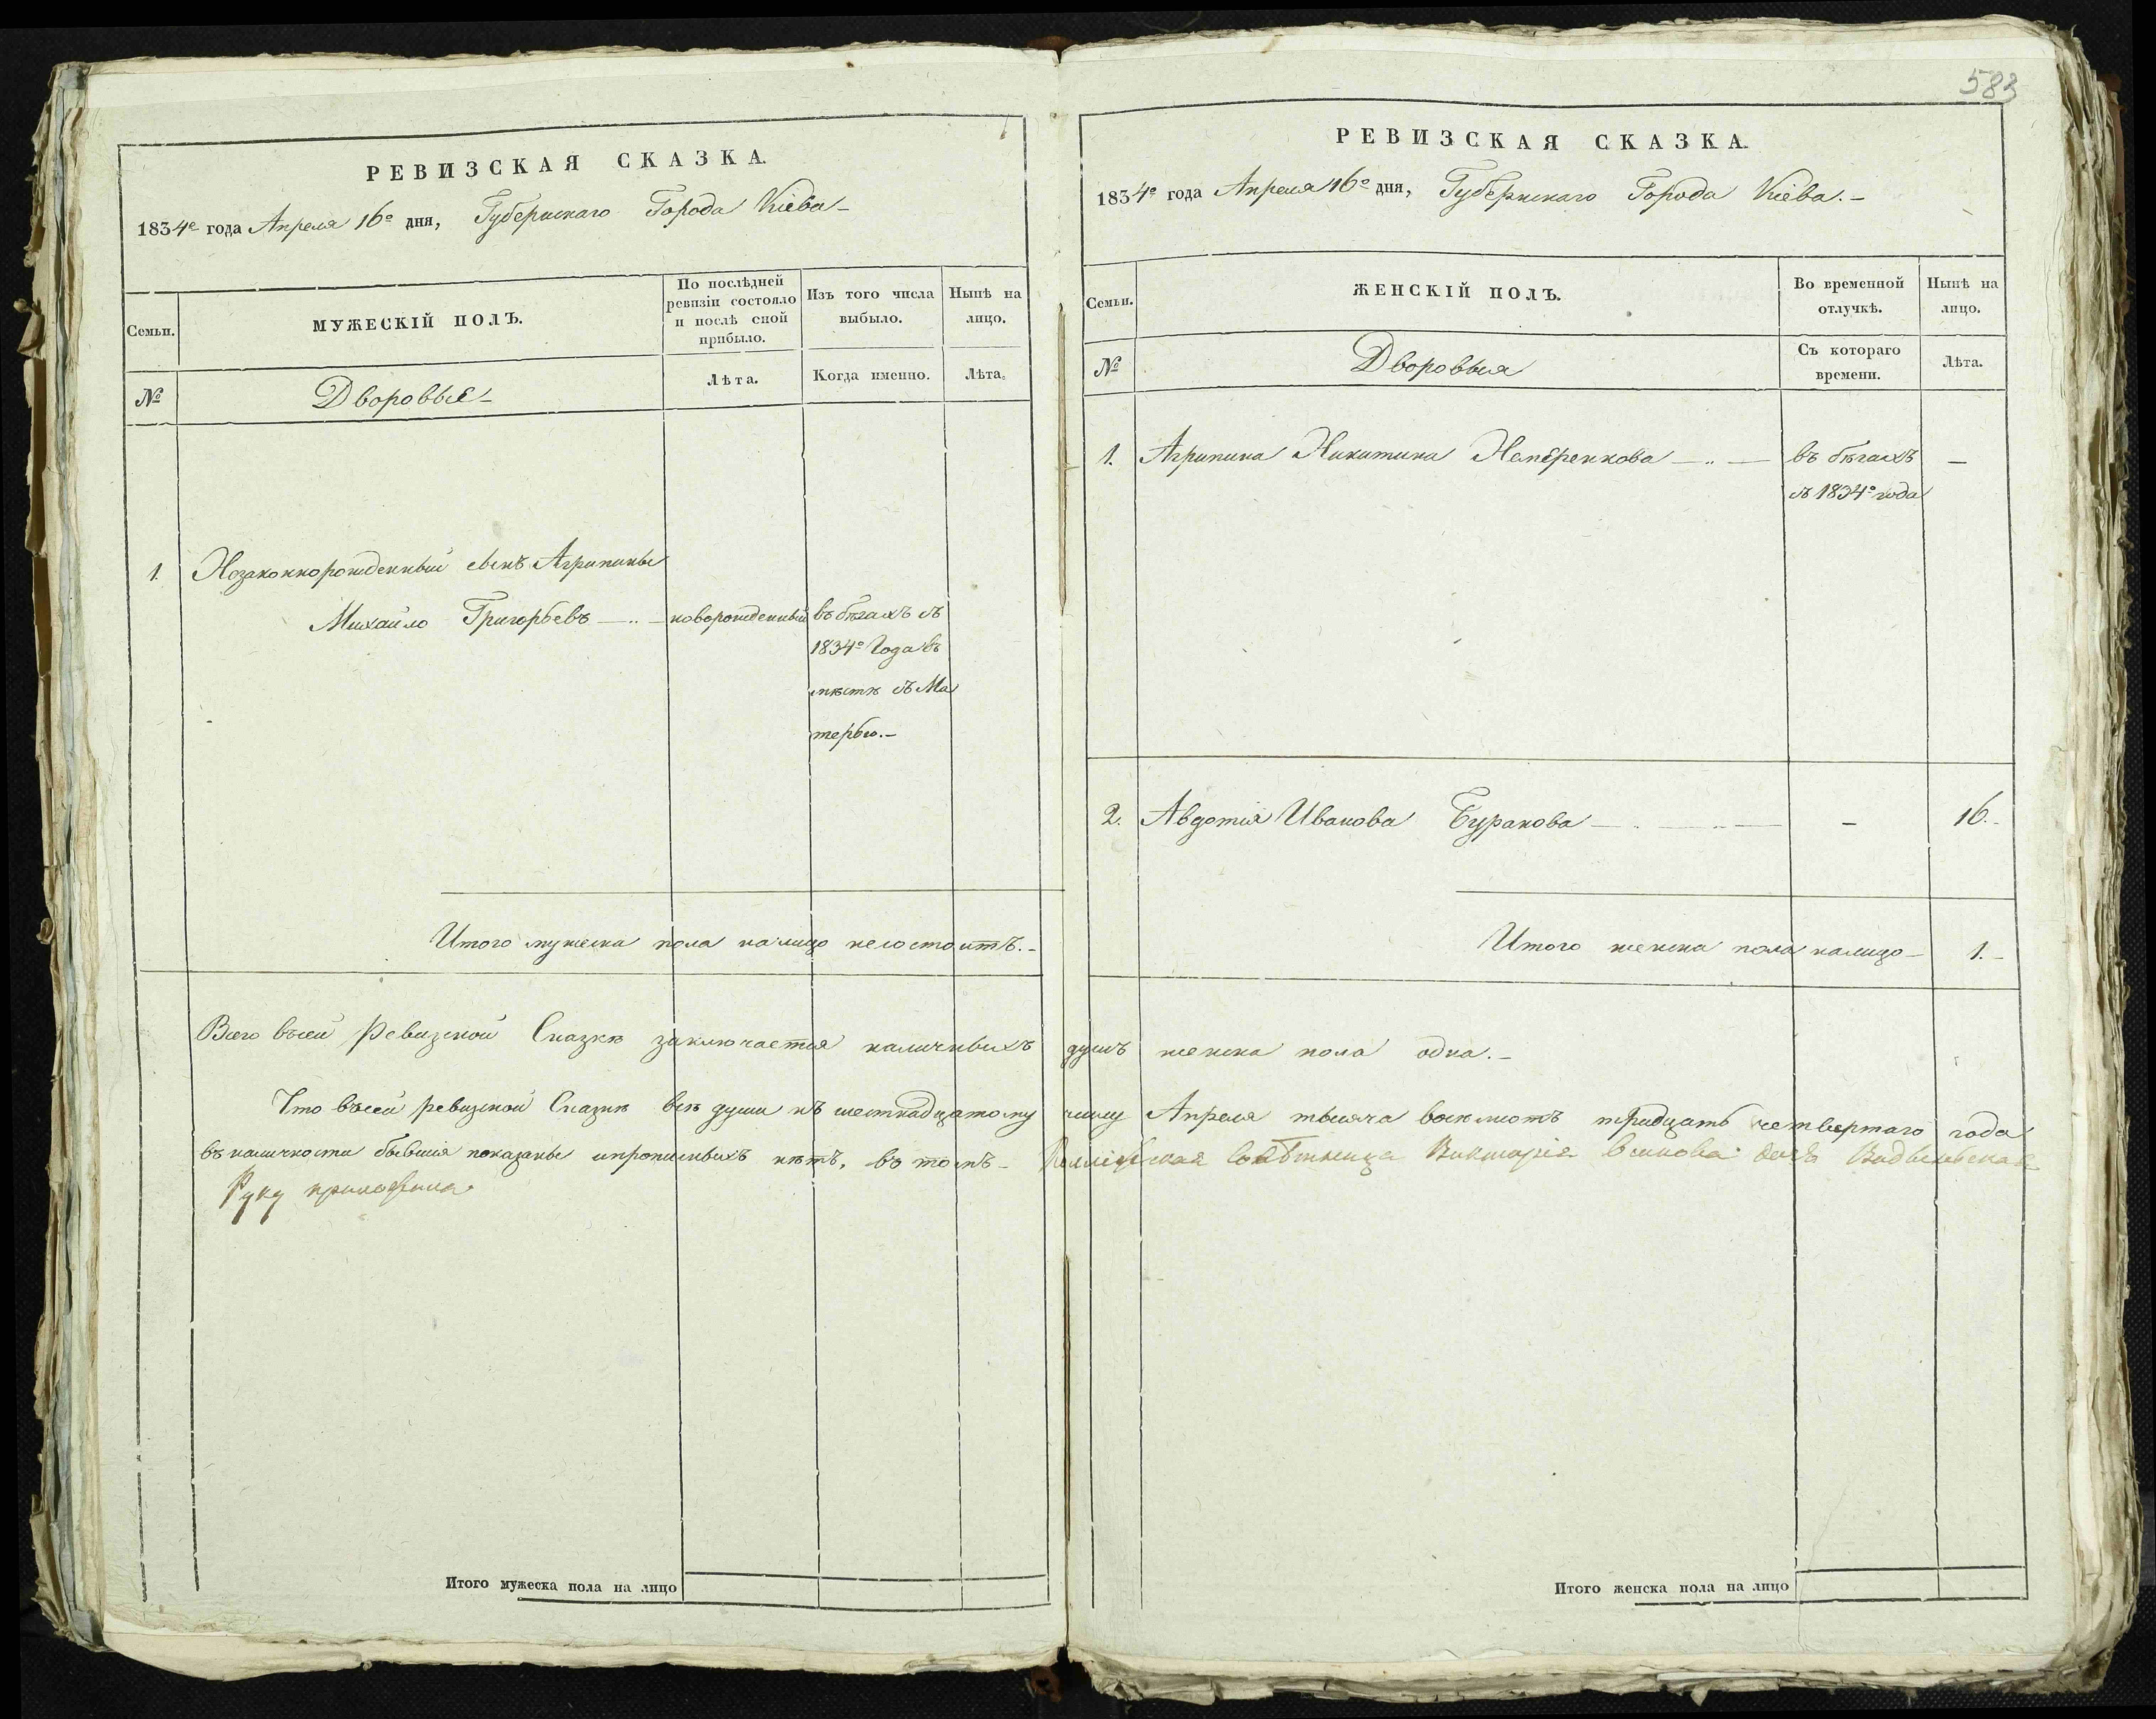 583
РЕВИЗСКАЯ СКАЗКА.
1834е года Апреля 16е дня, Губернскаго Города Кіева
Семьи.
МУЖЕСКІЙ ПОЛЪ.
По послѣдней ревизіи состояло и послѣ оной прибыло.
Изъ того числа выбыло.
Нынѣ на лицо.
№
Дворовые
Лѣта.
Когда именно.
Лѣта.
1. Незаконнорожденный сынъ Агрипины
Михайло Григорьевъ новорожденный въ бѣгахъ съ
1834о Года въ
мѣстѣ съ Ма
терью.
Итого мужеска пола на лицо несостоитъ.
РЕВИЗСКАЯ СКАЗКА.
1834о года Апреля 16о дня, Губернскаго Города Кіева.
Семьи.
ЖЕНСКІЙ ПОЛЪ.
Во временной отлучкѣ.
Нынѣ на лицо.
№
Дворовыя
Съ котораго времени.
Лѣта.
1. Агрипина Никитина въ бѣгахъ —
съ 1834о года
2. Авдотия Иванова Буракова — 16.
Итого женска пола налицо 1.
Всего въсей Ревизской Сказкѣ заключается наличныхъ душъ женска пола одна.
Что въсей ревизской Сказкѣ всѣ души къ шестнадцатому числу Апреля тысяча восемсотъ тридцать четвертаго года
въ наличности бывшія показаны ипрописныхъ нѣтъ, въ томъ Совѣтница Викторія
Руку приложила
Итого мужеска пола на лицо
Итого женска пола на лицо